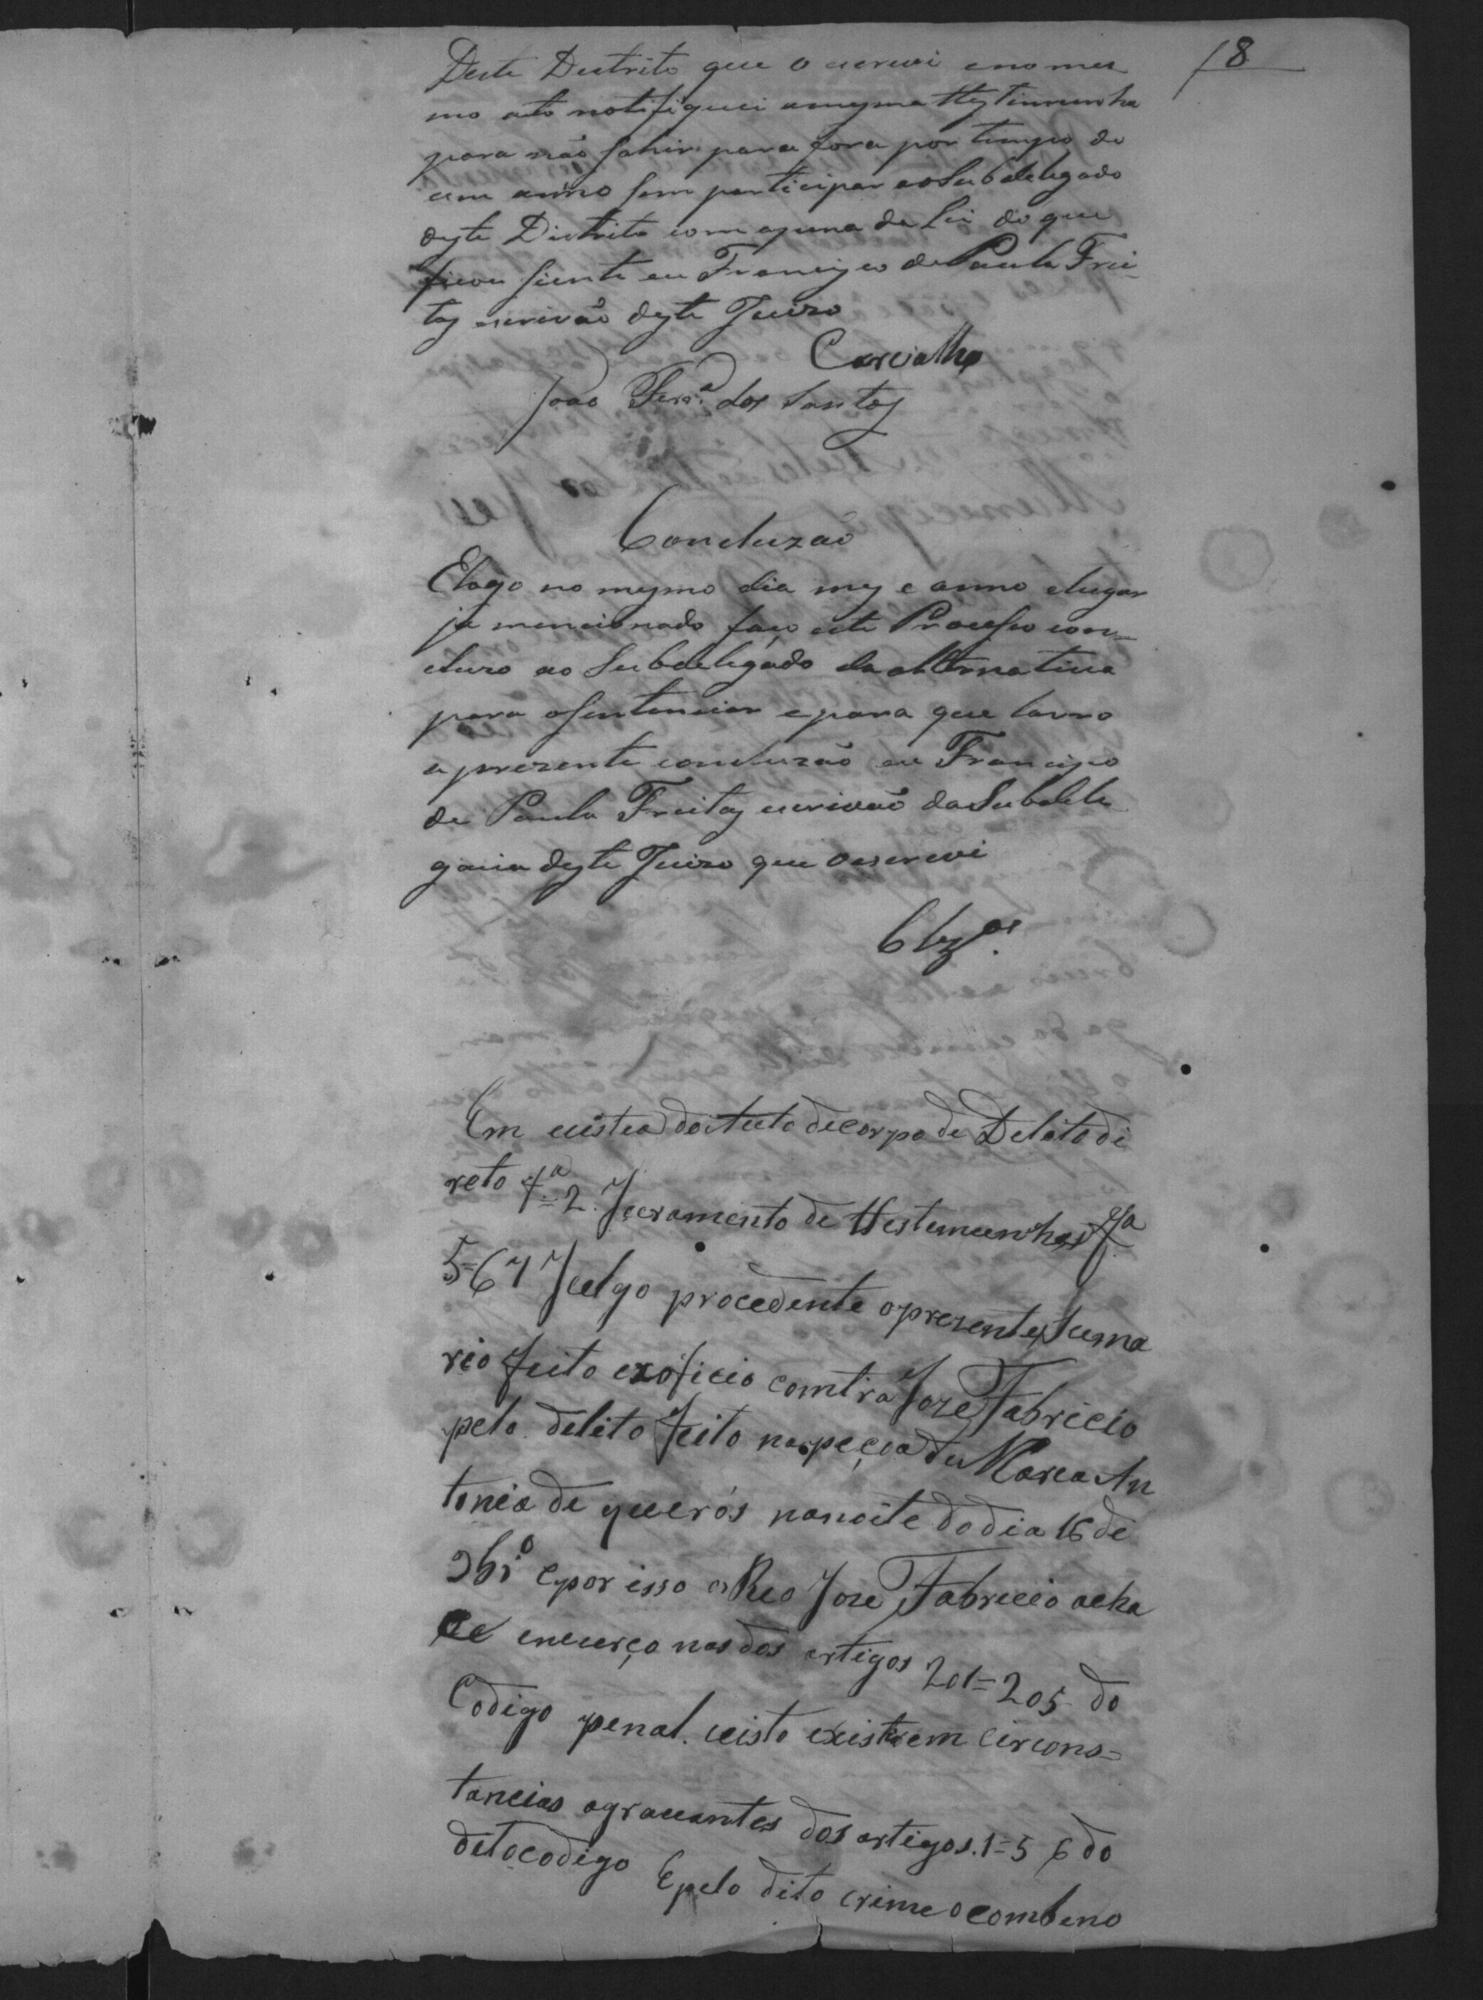 8
Deste Destrito que o escrevi e no mes
mo ato notifiquei a mesma testimunha
para não sahir para fora por tempo de
um anno sem participar ao Subdelegado
deste Districto com apena da Lei do que
ficou siente eu Francisco de Paula Frei-
tas escrivão deste Juizo
Carvalho
João Ferr.ª dos Santos
Concluzão
E logo no mesmo dia mes e anno e lugar
ja mencionado faço este Processo con-
cluzo ao Subdelegado da alternativa
para o sentenciar e para que lavro
a prezente concluzão eu Francisco
de Paula Freitas escrivão da Subdele
gacia deste Juizo que o escrevi
Clzos.
Em vista do Auto de Corpo de Delito di
reto fª=2. Juramento de testemunhas fª
5=6 7 Julgo procedente o prezente Suma
rio feito exóficio comtra Joze Fabricio
pelo delito feito na peçoa de Maria An
tonia de querós na noite do dia 16 de
9brº e por isso o Reo Joze Fabricio acha
se encurço nas dos artigos 201=205 do
Codigo penal. visto existirem circons=
tancias agravantes dos artigos. 1=5 6 do
dito codigo E pelo dito crime o comdeno